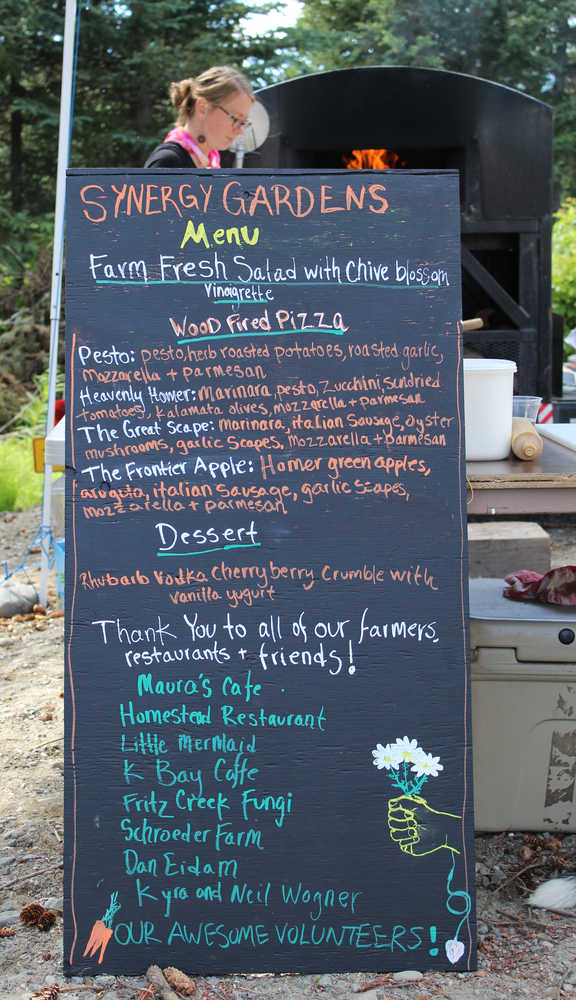 SYNERGY GARDENS
Menu
Farm Fresh Salad with Chive blossom
Vinaigrette
Wood Fired Pizza
Pesto: pesto, herb roasted potatoes, roasted garlic,
Mozzarella + parmesan
Heavenly Homer: Marinara, pesto, Zucchini, sundried
tomatoes, Kalamata olives, mozzarella + parmesan
The Great Scape: marinara, italian Sausage, oyster
mushrooms, garlic Scapes, mozzarella + parmesan
The Frontier Apple: Homer green apples,
arugula, italian Sausage, garlic Scapes,
mozzarella + parmesan
Dessert
Rhubarb Vodka Cherryberry Crumble with
vanilla yogurt
Thank You to all of our farmers,
restaurants + friends!
Maura's Cafe
Homestead Restaurant
Little Mermaid
K Bay Caffe
Fritz Creek Fungi
Schroeder Farm
Dan Eidam
Kyra and Neil Wagner
OUR AWESOME VOLUNTEERS!